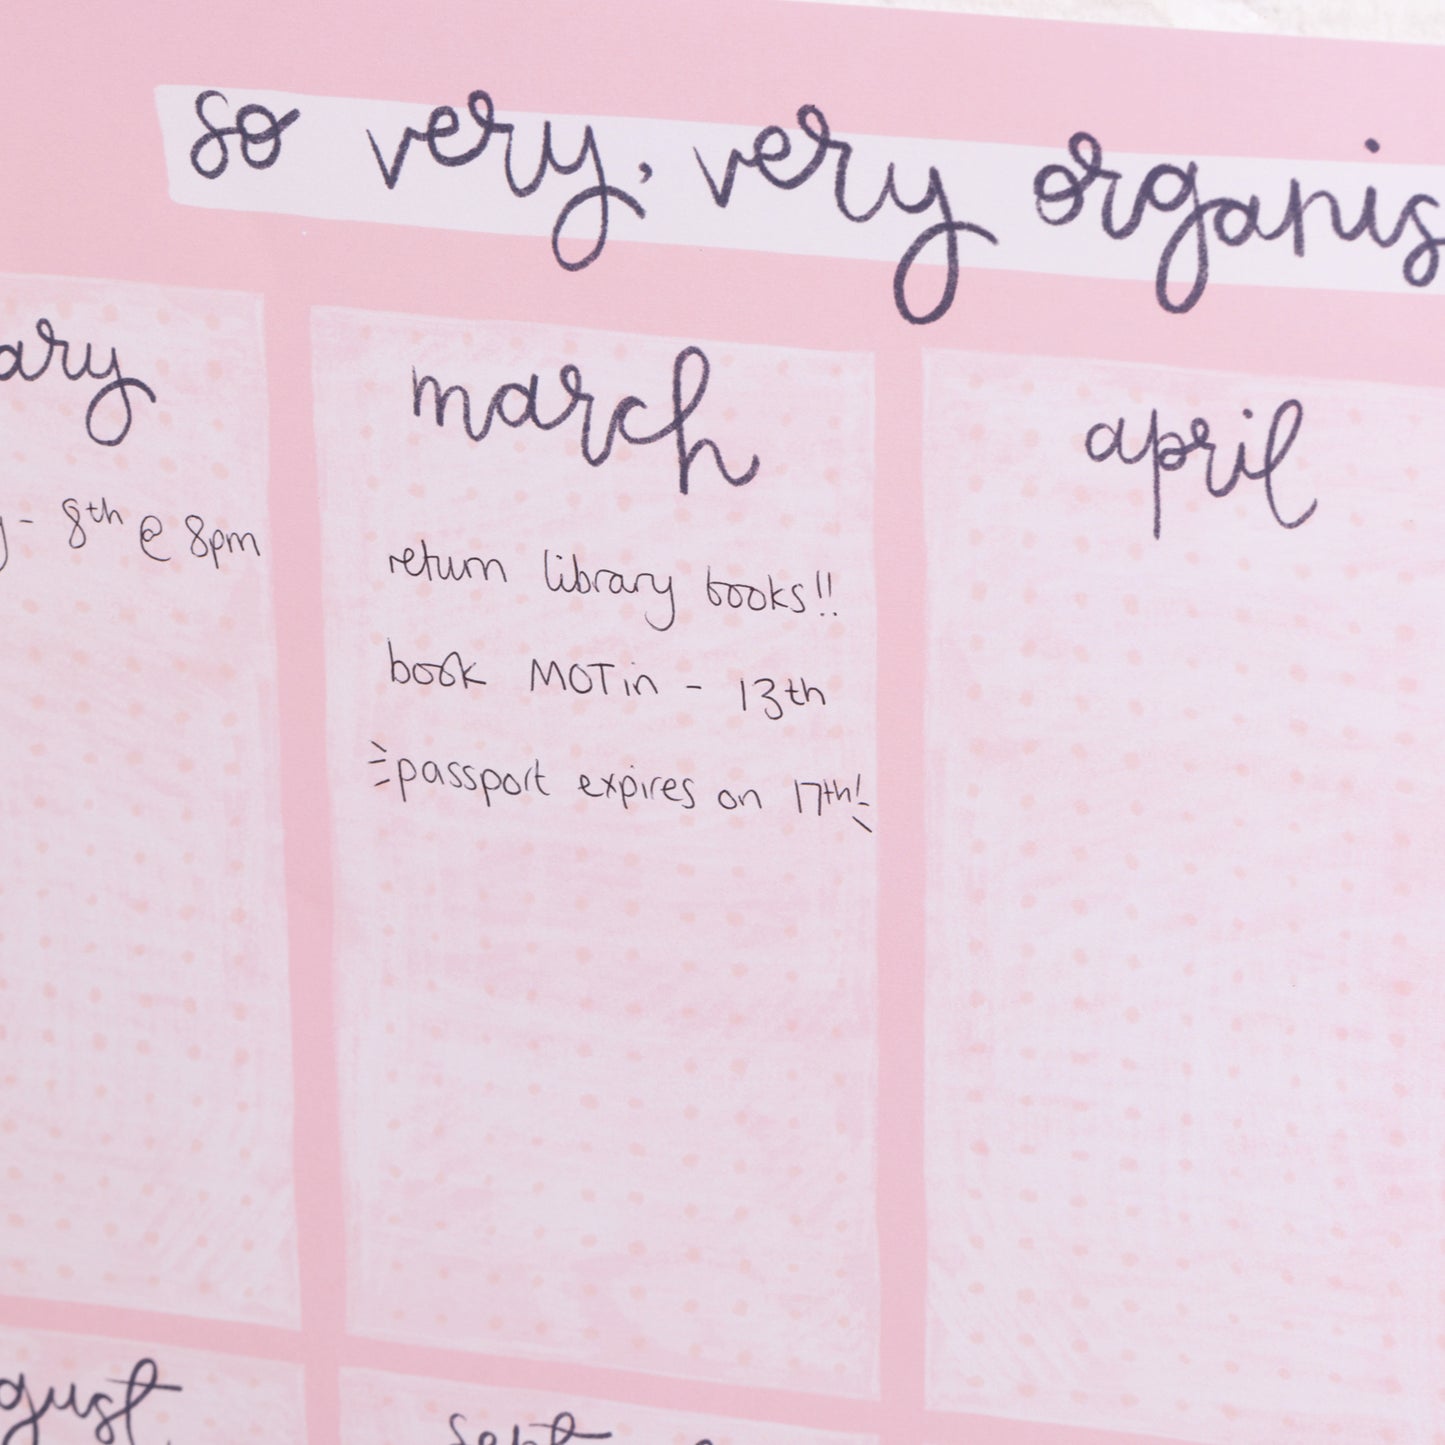 so very, very organis
ary
- 8th @ 8pm
march
return library books!!
book MOT in - 13th
passport expires on 17th!
april
gust
sept